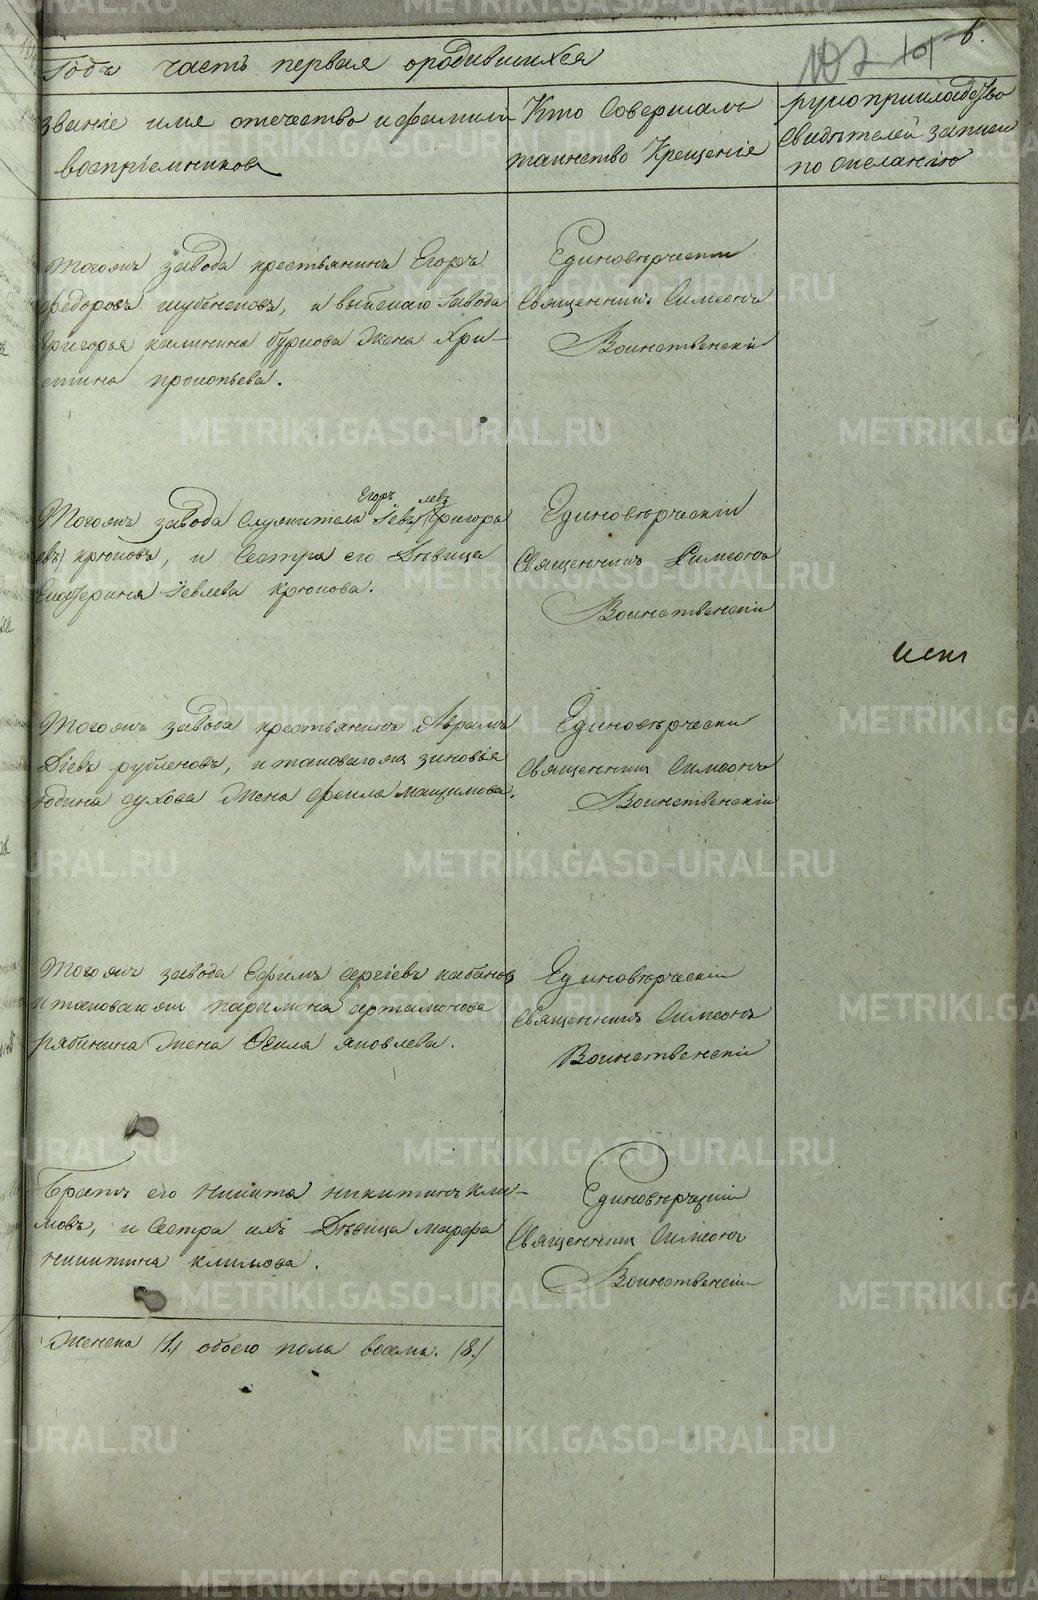 Годъ часть первая ородившихся
6.
102
званіе имя отечество и фамиліи
воспріемниковъ
Кто Совершалъ
таинство Крещенія
рукоприкладство
свидѣтелей записи
по желанію
Тогожъ завода крестьянинъ Егоръ
федоровъ шубенковъ, и выйскаго завода
Григорья калинина буркова жена Хри-
стина прокопьева.
Единовѣрчески
Священникъ Симеонъ
Воинственскій
Егоръ левъ
Тогожъ завода служитель Іевъ Григорь
евъ крюковъ, и Сестра его Дѣвица
Екатерина Іевлева крюкова.
Единовѣрческій
Священникъ Симеонъ
Воинственскій
Тогожъ завода крестьянинъ Аврамъ
Діевъ рубленовъ, и таковагожъ зиновья
юдина сухова жена Фекла Максимова.
Единовѣрчески
Священникъ Симеонъ
Воинственскій
Тогожъ завода Ефимъ сергіевъ кабановъ
и таковагожъ парамона артамонова
рябинина жена Фекла яковлева.
Единовѣрческій
Священникъ Симеонъ
Воинственскій
Братъ его никита никитинъ кли-
мовъ, и Сестра ихъ Дѣвица марфа
никитина климова.
Единовѣрческій
Священникъ Симеонъ
Воинственскій
Женска /1./ обоего пола восемь. /8./
METRIKI.GASO-URAL.RU